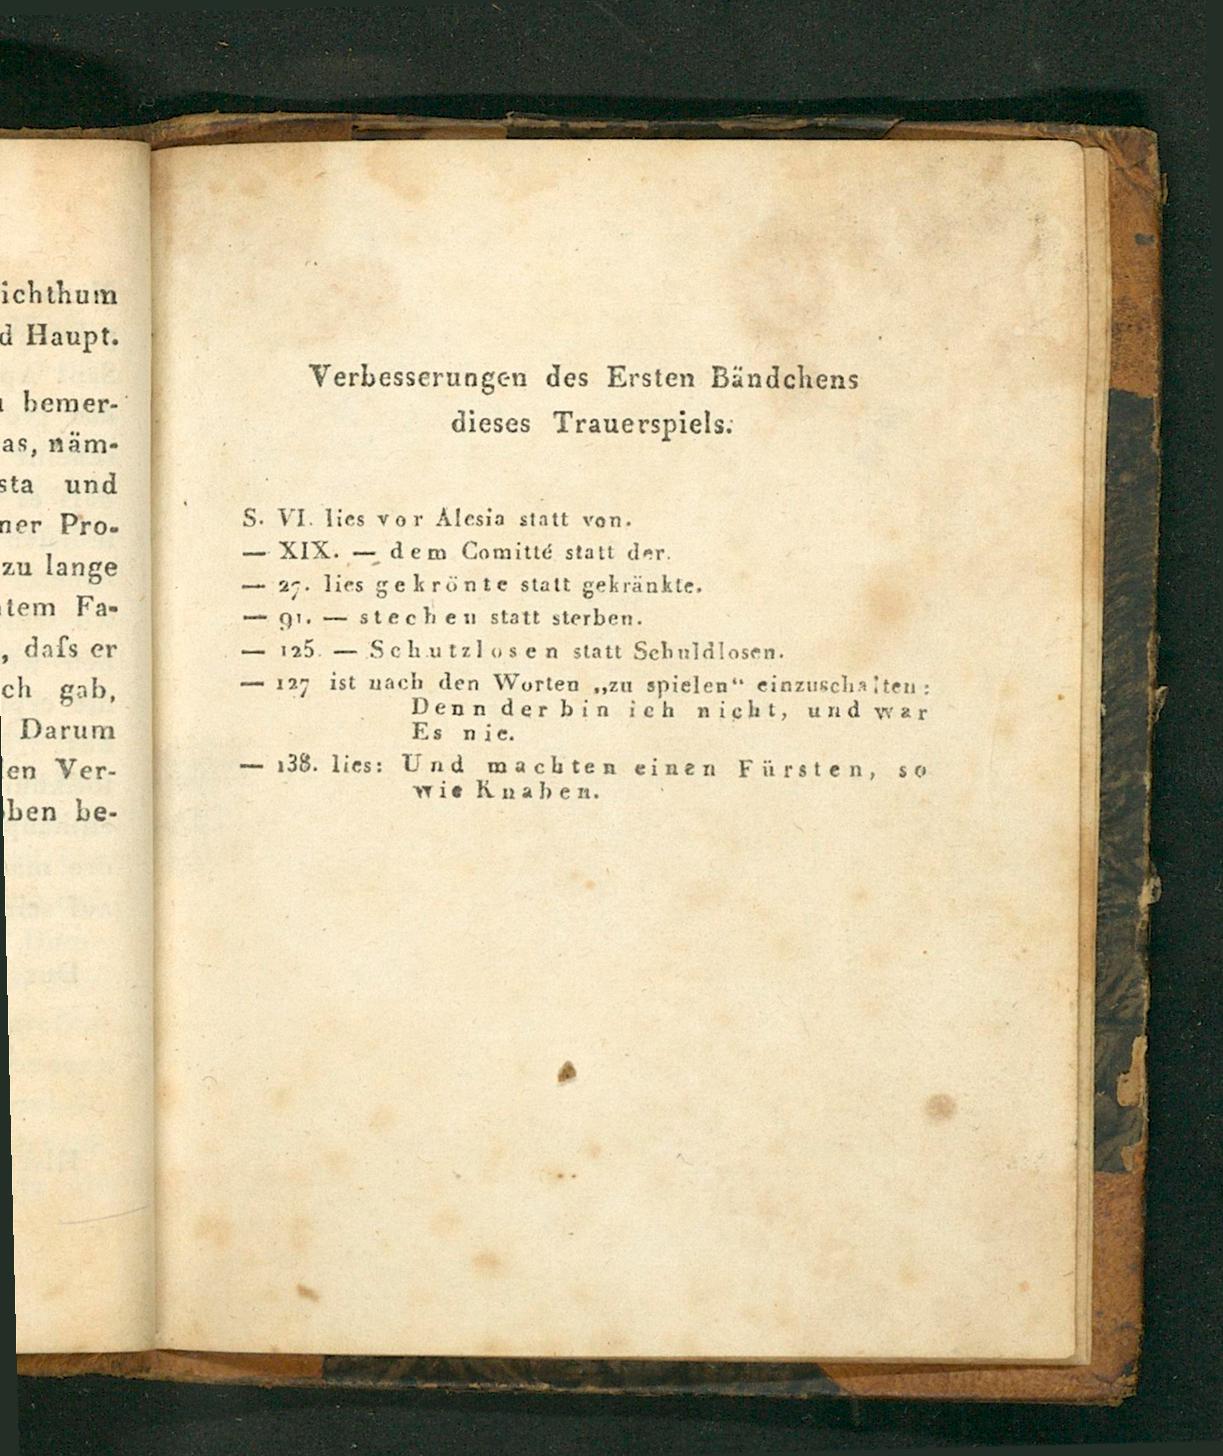 ichthum
d Haupt.
bemer-
as, näm-
sta und
ner Pro-
zu lange
tem Fa-
, daſs er
ch gab,
Darum
en Ver-
ben be-
Verbesserungen des Ersten Bändchens
dieses Trauerspiels.
S. VI. lies vor Alesia statt von.
— XIX. — dem Comitté statt der.
— 27. lies gekrönte statt gekränkte.
— 91. — stechen statt sterben.
— 125. — Schutzlosen statt Schuldlosen.
— 127 ist nach den Worten „zu spielen“ einzuschalten:
Denn der bin ich nicht, und war
Es nie.
— 138. lies: Und machten einen Fürsten, so
wie Knaben.